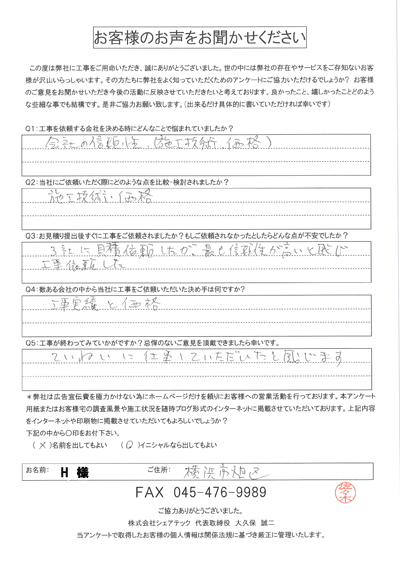 お客様のお声をお聞かせください
この度は弊社に工事をご用命いただき、誠にありがとうございました。世の中には弊社の存在やサービスをご存知ないお客
様が沢山いらっしゃいます。その方たちに弊社をよく知っていただくためのアンケートにご協力いただけるでしょうか? お客様
のご意見をお聞かせいただき今後の活動に反映させていきたいと考えております。良かったこと、嬉しかったことどのよう
な些細な事でも結構です。是非ご協力お願い致します。(出来るだけ具体的に書いていただければ幸いです)
Q1:工事を依頼する会社を決める時にどんなことで悩まれていましたか?
会社の信頼性(施工技術、価格)
Q2:当社にご依頼いただく際にどのような点を比較・検討されましたか?
施工技術、価格
Q3:お見積り提出後すぐに工事をご依頼されましたか?もしご依頼されなかったとしたらどんな点が不安でしたか?
3社に見積依頼したが、最も信頼性が高いと感じ
工事依頼した
Q4:数ある会社の中から当社に工事をご依頼いただいた決め手は何ですか?
工事実績と価格
Q5:工事が終わってみていかがですか?忌憚のないご意見を頂戴できましたら幸いです。
ていねいに仕事していただいたと感じます
*弊社は広告宣伝費を極力かけない為にホームページだけを頼りにお客様への営業活動を行っております。本アンケート
用紙またはお客様宅の調査風景や施工状況を随時ブログ形式のインターネットに掲載させていただいております。上記内容
をインターネットや印刷物に掲載させていただいてもよろしいでしょうか?
下記の中から〇印をお付下さい。
(×)名前を出してもよい (〇)イニシャルなら出してもよい
お名前: H 様 ご住所: 横浜市旭区
FAX 045-476-9989
ご協力ありがとうございました。
株式会社シェアテック 代表取締役 大久保 誠二
当アンケートで取得したお客様の個人情報は関係法規に基づき厳正に管理いたします。